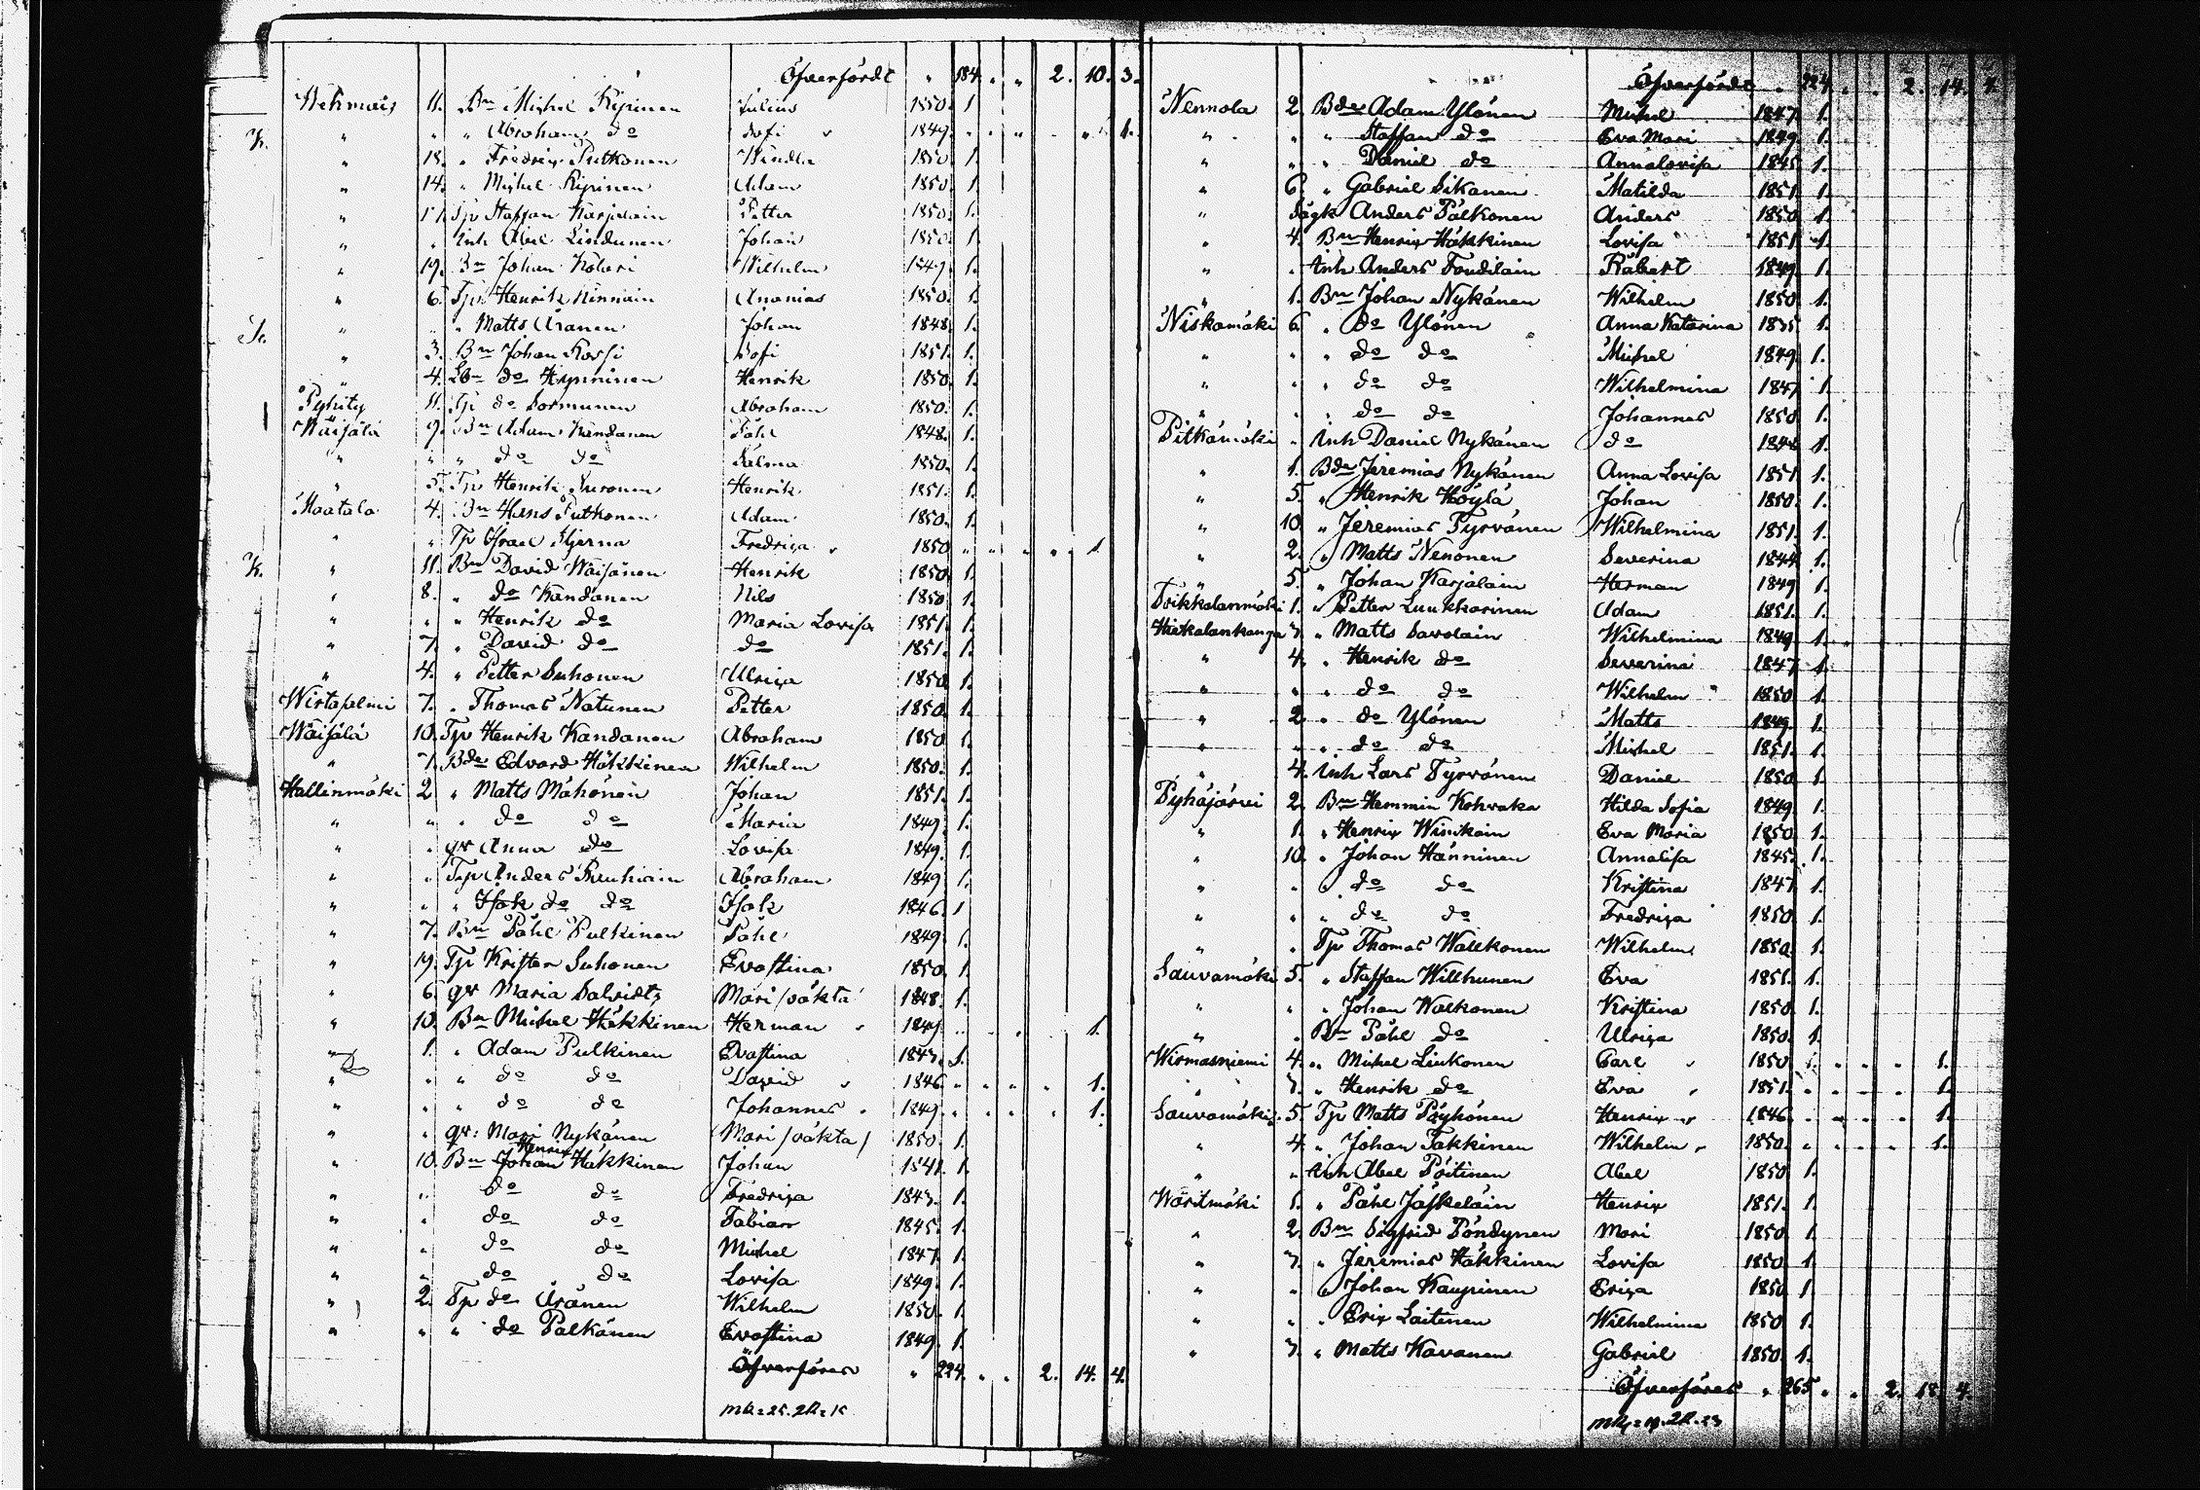 Öfverfördt " 184. " " 2. 10. 3.
11. Bn Michel Ripinen Julius 1850. 1.
K. " " " Abraham do Sofi 1849. " " " " " 1.
" 18. " Fredrix Putkonen 1850. 1.
" 14. " Michel Ripinen Adam 1850. 1.
" Tp Staffan Karjalain Petter 1850. 1.
" " Inh Abel Lindunen Johan 1850. 1.
" 19. Bn Johan Kolari Wilhelm 1849. 1.
" 6. Tp Henrik Kinnain Ananias 1850. 1.
" " " Matts Aranen Johan 1848. 1.
" 3. Bn Johan Sofi 1851. 1.
" 4. do Hynninen Henrik 1850. 1.
Pyhity 11. Tp do Sormunen Abraham 1850. 1.
Wäisälä 9. Bn Adam Kandanen Påhl 1848. 1.
" " " do do Salma 1850. 1.
" 5. Tp Henrik Henrik 1851. 1.
Maatala 4. Bn Hans Putkonen Adam 1850. 1.
" " Tp Israel Stjerna Fredrixa 1850 " " " " 1.
K. " 11. Bn David Wäisänen Henrik 1850. 1.
" 8. " do Kandanen Nils 1850. 1.
" " " Henrik do Maria Lovisa 1851. 1.
" 7. " David do do 1851. 1.
" 4. " Petter Suhonen Ulrixa 1850. 1.
Wirtasalmi 7. " Thomas Natunen Petter 1850. 1.
Wäisälä 10. Tp Henrik Kandanen Abraham 1850 1.
" 7. Bde Edvard Häkkinen Wilhelm 1850. 1.
Hallinmäki 2 " Matts Mähönen Johan 1851. 1.
" " " do do Maria 1849. 1.
" " qv Anna do Lovisa 1849. 1.
" " Tp Anders Abraham 1849 1.
" " " Isak do do Isak 1846. 1
" 7. Bn Påhl Pulkinen Påhl 1849. 1.
" 19. Tp Krister Suhonen Evastina 1850. 1.
" 6. qv Maria Mari /oäkta/ 1848. 1.
" 10. Bn Michel Häkkinen Herman 1849. " " 1.
" 1. " Adam Pulkinen Evastina 1843. 1.
" " " do do David 1846. " " " " 1.
" " " do do Johannes 1849. " " " " 1.
" " qv: Mari Nykänen Mari /oäkta/ 1850. 1.
" 10. Bn Johan Henrix Häkkinen Johan 1841. 1.
" " do do Fredrixa 1843. 1.
" " do do Fabian 1845. 1.
" " do do Michel 1847. 1.
" " do do Lovisa 1849. 1.
" 2. Tp do Aranen Wilhelm 1850. 1.
" " " do Palkänen Evastina 1849. 1.
Öfverföres " 224. " " 2. 14. 4.
Öfverfördt " 224. " " 2. 14. 4.
Nennola 2. Bde Adam Ylönen Michel 1847. 1.
" " " Staffan do Eva Mari 1849. 1.
" " " Daniel do Annalovisa 1845. 1.
" 6. " Gabriel Sikanen Matilda 1851. 1.
" Sågk Anders Pålkonen Anders 1850. 1.
" 4. Bn Henrix Häkkinen Lovisa 1851. 1.
" " Inh Anders Toudilain Råbert 1849. 1.
" 1. Bn Johan Nykänen Wilhelm 1850. 1.
Niskamäki 6. " do Ylönen Anna Katarina 1835. 1.
" " " do do Michel 1849. 1.
" " " do do Wilhelmina 1847. 1.
" " " do do Johannes 1850. 1.
Pitkämäki " Inh Daniel Nykänen do 1848. 1.
" 1. Bde Jeremias Nykänen Anna Lovisa 1851. 1.
" 5. " Henrik Höylä Johan 1850. 1.
" 10. " Jeremias Tyrvänen Wilhelmina 1851. 1.
" 2. " Matts Nenonen Severina 1844. 1.
" 5. " Johan Karjalain Herman 1849 1.
1. " Petter Luukkarinen Adam 1851. 1.
Hiekalankanga 7. " Matts Savolain Wilhelmina 1849. 1.
" 4. " Henrik do Severina 1847. 1.
" " " do do Wilhelm 1850 1.
" 2. " do Ylönen Matts 1849. 1.
" " " do do Michel 1851. 1.
" 4. Inh Lars Tyrvänen Daniel 1850. 1.
Pyhäjärvi 2. Bn Hemmin Kohvaka Hilda Sofia 1849. 1.
" 1. " Henrix Winikain Eva Maria 1850. 1.
" 10. " Johan Hänninen Annalisa 1845. 1.
" " " do do Kristina 1847. 1.
" " " do do Fredrixa 1850. 1.
" " Tp Thomas Walkonen Wilhelm 1850. 1.
Sauvamäki 5. " Staffan Willhunen Eva 1851. 1.
" " " Johan Walkonen Kristina 1850. 1.
" " Bn Påhl do Ulrixa 1850. 1.
Wirmasniemi 4. " Michel Liukonen Carl 1850. " " " " 1.
" 7. " Henrik do Eva 1851. " " " " 1.
Sauvamäki 5. Tp Matts Pöyhönen Henrix 1846. " " " " 1.
" 4. " Johan Takkinen Wilhelm 1850. " " " " 1.
" " Inh Abel Pöitinen Abel 1850. 1.
Woritmäki 1. " Påhl Jäskeläin Henrix 1851. 1.
" 2. Bn Sigfrid Pöndynen Mari 1850. 1.
" 7. " Jeremias Häkkinen Lovisa 1850. 1.
" " " Johan Kaupinen Erixa 1850. 1.
" " " Erix Laitinen Wilhelmina 1850. 1.
" 7. " Matts Kavanen Gabriel 1850. 1.
Öfverföres " 265. " " 2. 18. 4.